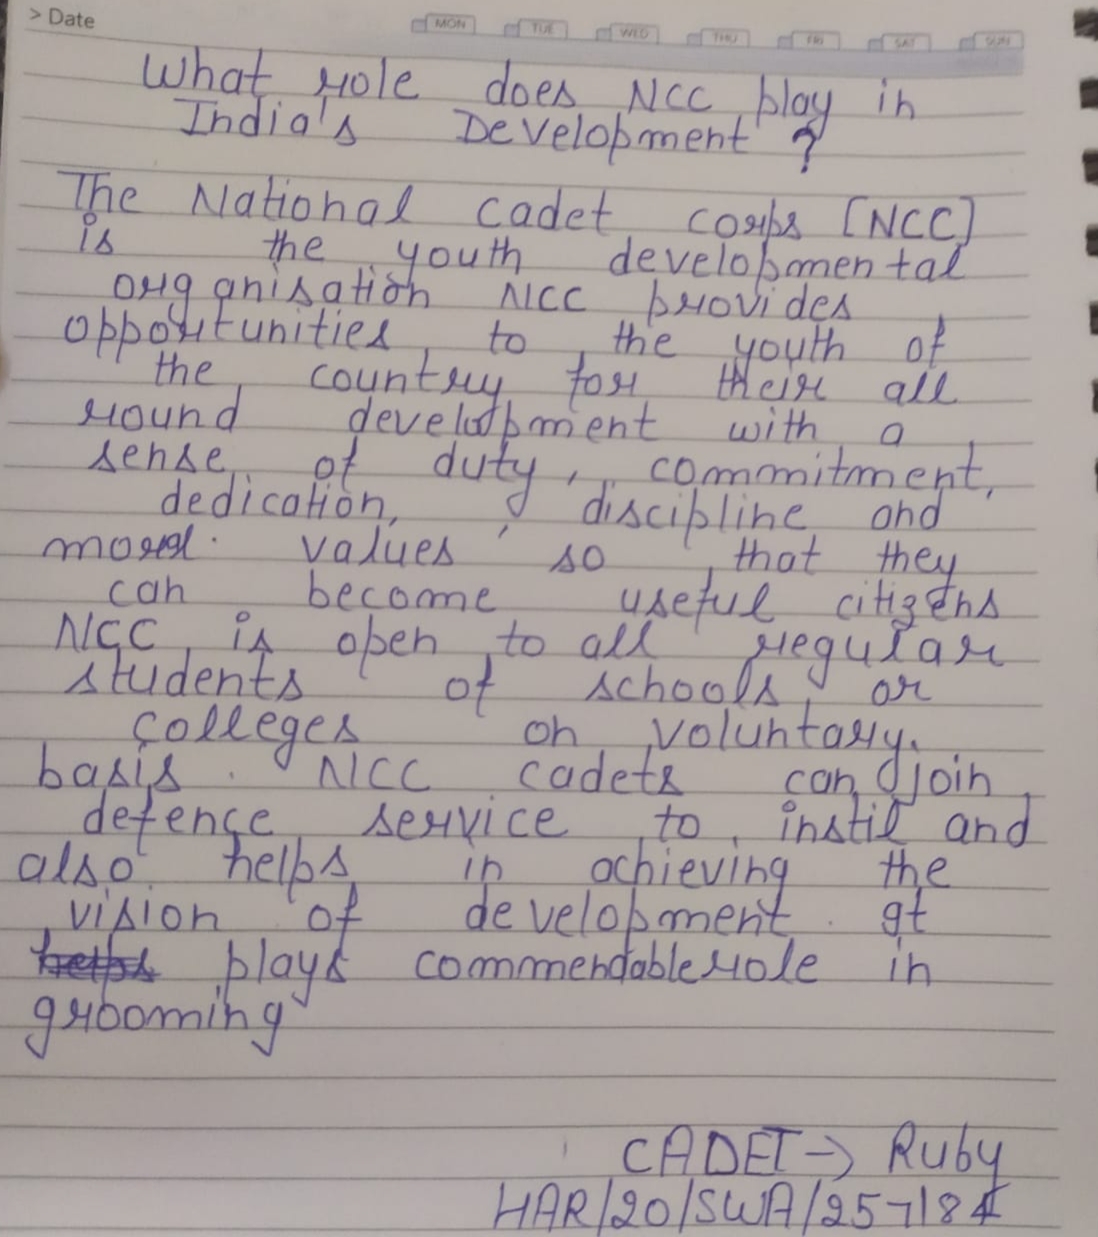 > Date
MON TUE WED THU FRI SAT SUN
What role does NCC play in
India's Development ?
The National cadet corps [NCC]
is the youth developmental
organisation NCC provides
opportunities to the youth of
the country for their all
round development with a
sense of duty, commitment,
dedication, discipline and
moral values so that they
can become useful citizens
NCC is open to all regular
students of schools or
colleges on voluntary
basis. NCC cadets can join
defence service to instil and
also helps in achieving the
vision of development. It
helps plays commendable role in
grooming
CADET → Ruby
HAR/20/SWA/257184